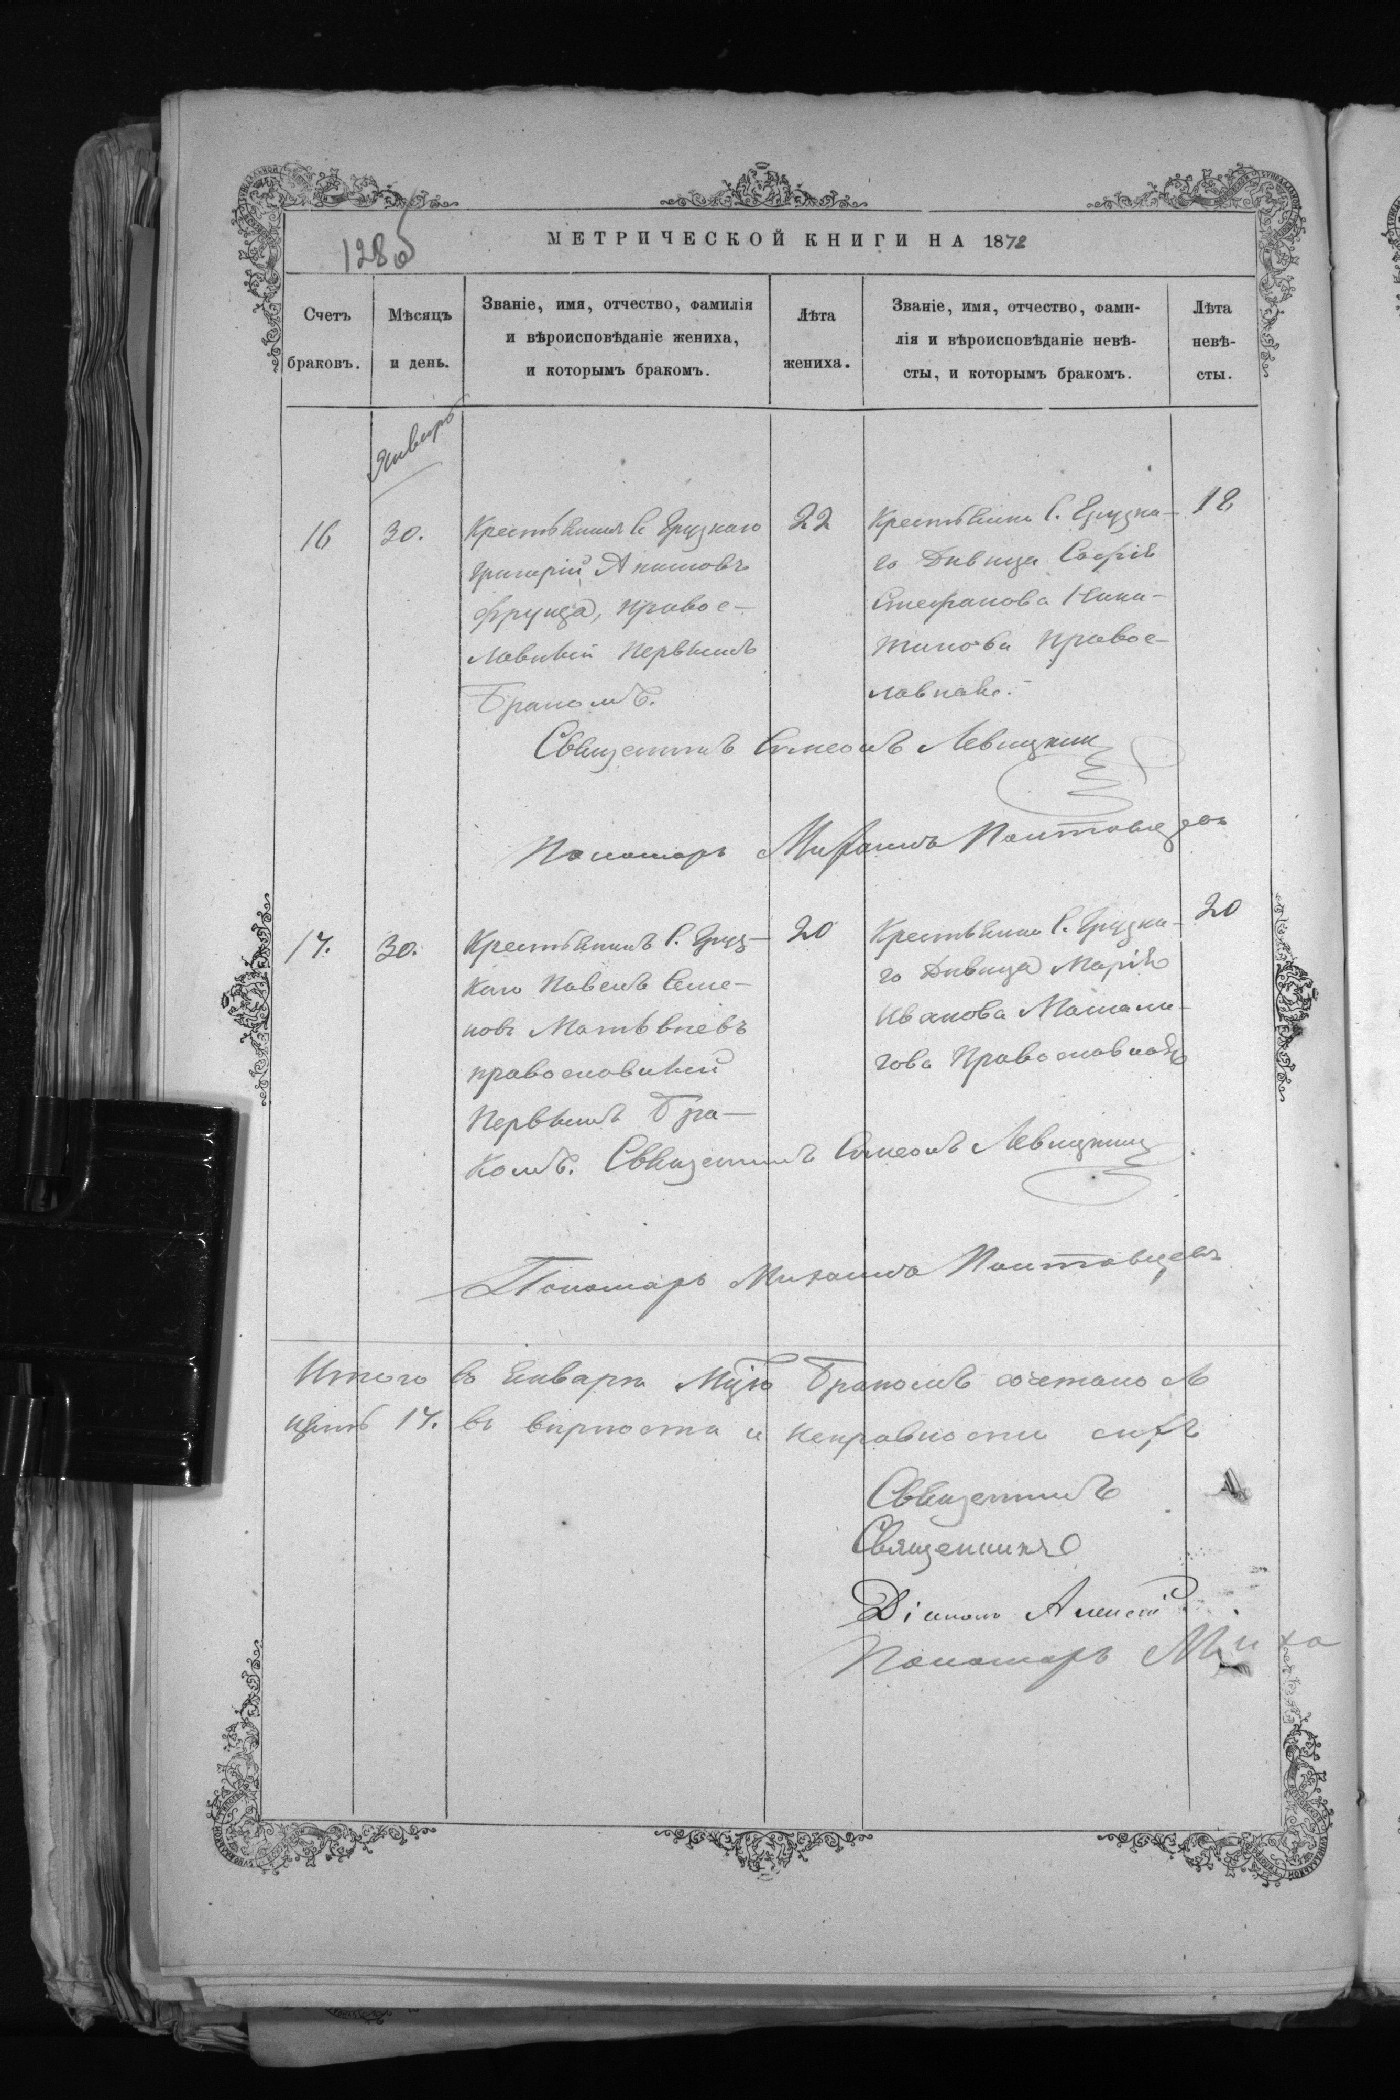 128 об
МЕТРИЧЕСКОЙ КНИГИ НА 1872
Счетъ браковъ.
Мѣсяцъ и день.
Званіе, имя, отчество, фамилія
и вѣроисповѣданіе жениха,
и которымъ бракомъ.
Лѣта жениха.
Званіе, имя, отчество, фами-
лія и вѣроисповѣданіе невѣ-
сты, и которымъ бракомъ.
Лѣта
невѣ-
сты.
Январь
16
30.
Крестьянинъ с. Грузкаго
Григорій Акимовъ
Фрунда, правос-
лавный первымъ
бракомъ.
22
Крестьянка с. Грузка-
го Дѣвица Софія
Стефанова Ники-
тинова правос-
лавная.
18
Священникъ Симеонъ Левицкий
Пономарь Михаилъ Полтавцевъ
17.
30.
Крестьянинъ с. Груз-
каго Павелъ Семе-
новъ Матвѣевъ
православный
первымъ бра-
комъ.
20
Крестьянка с. Грузка-
го Дѣвица Марія
Иванова
Православная
20
Священникъ Симеонъ Левицкий
Пономарь Михаилъ Полтавцевъ
Итого въ Январѣ Мцѣ Бракомъ сочетано
17. въ вѣрности и исправности сихъ
Священникъ
Священникъ
Діаконъ Алексѣй
Пономарь Миха